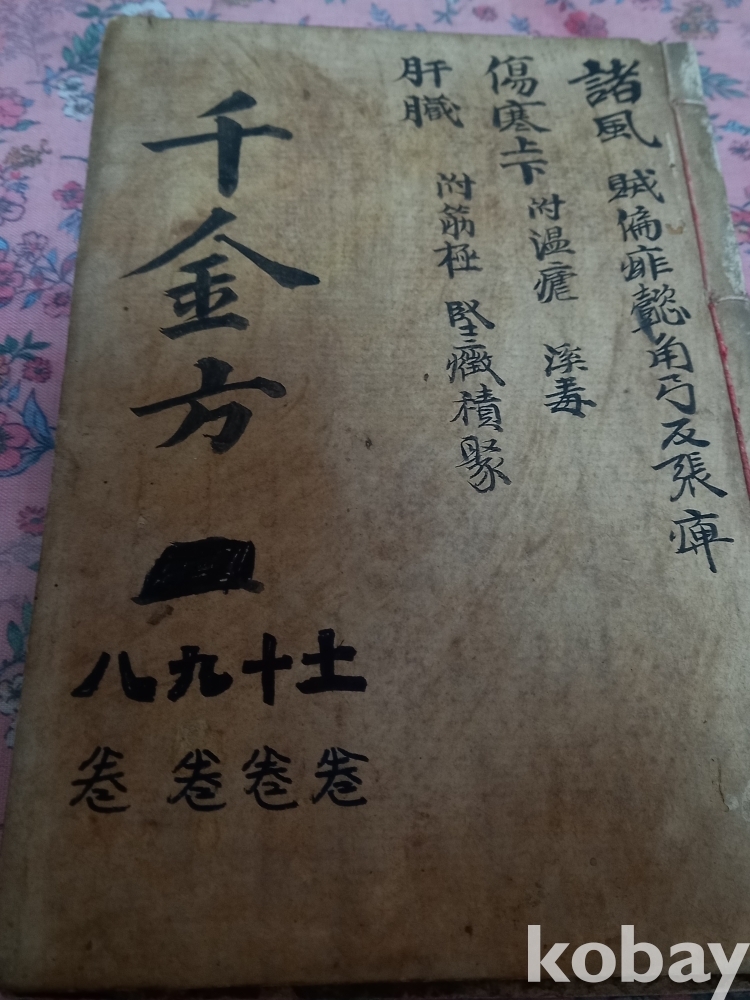 諸風 賊偏痱懿角弓反張痺
傷寒上下 附温瘧 溪毒
肝臟 附筋極 堅癥積聚
千金方
八九十土
卷卷卷卷
kobay